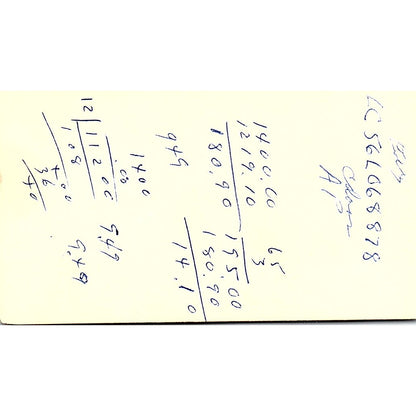 LC 56L668878
A10
1400.00
1219.10
180.90
65
3
195.00
180.90
14.10
949
1400
.08
12 112.00
108
36
40
9.49
9.49